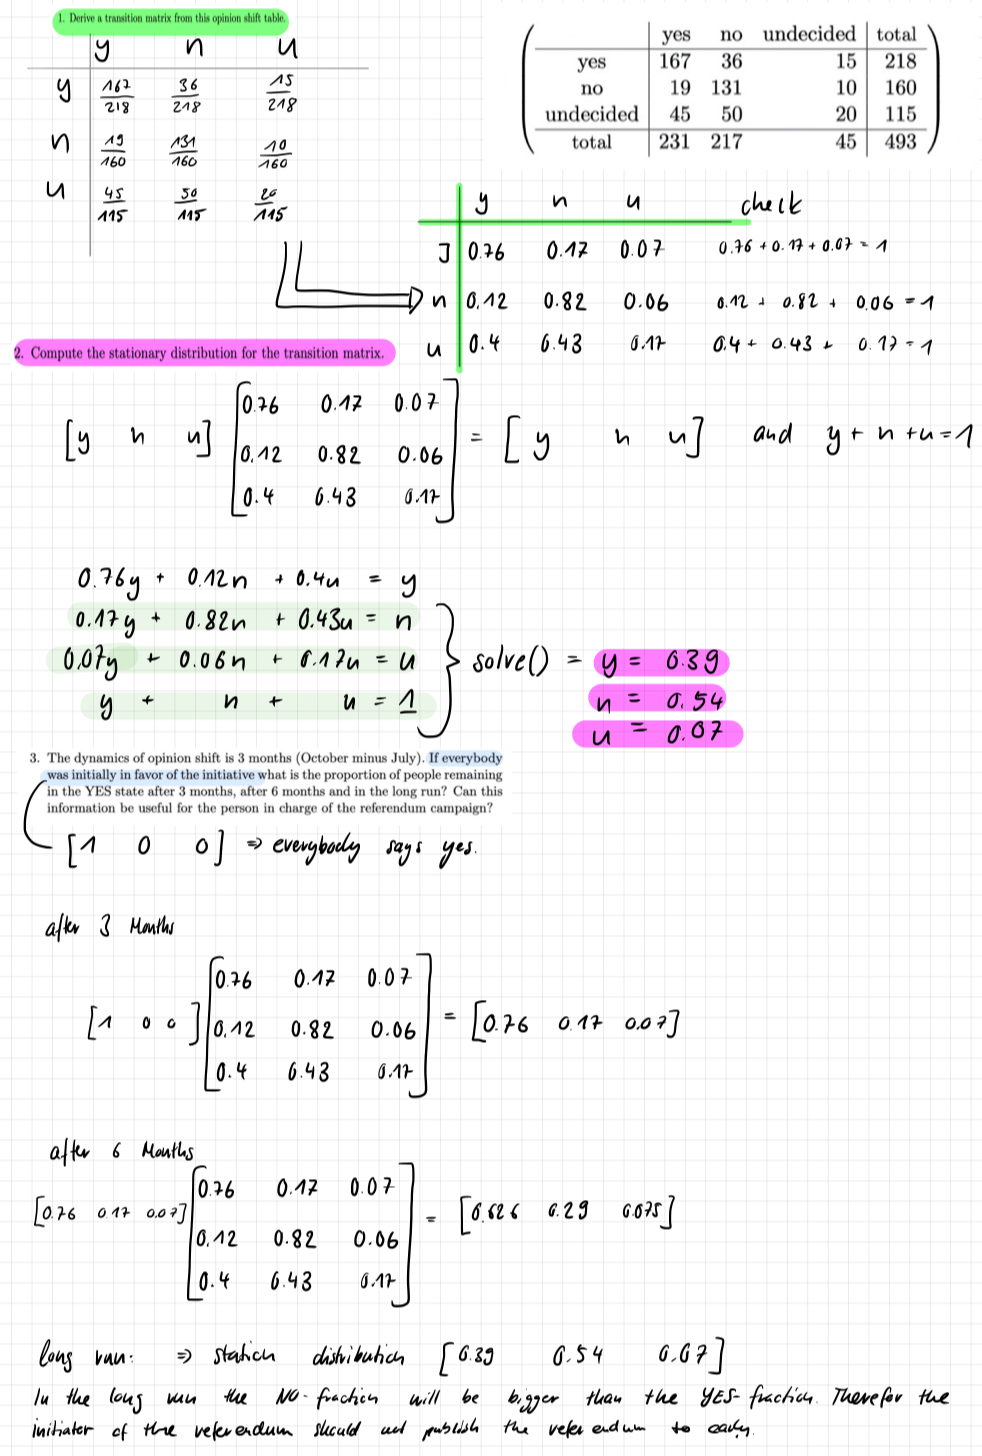 1. Derive a transition matrix from this opinion shift table.
y n u
y 167/218 36/218 15/218
n 19/160 131/160 10/160
u 45/115 50/115 20/115
yes no undecided total
yes 167 36 15 218
no 19 131 10 160
undecided 45 50 20 115
total 231 217 45 493
y n u check
J 0.76 0.17 0.07 0.76 + 0.17 + 0.07 = 1
n 0.12 0.82 0.06 0.12 + 0.82 + 0.06 = 1
u 0.4 0.43 0.17 0.4 + 0.43 + 0.17 = 1
2. Compute the stationary distribution for the transition matrix.
[y n u] [0.76 0.17 0.07
0.12 0.82 0.06
0.4 0.43 0.17] = [y n u] and y + n + u = 1
0.76y + 0.12n + 0.4u = y
0.17y + 0.82n + 0.43u = n
0.07y + 0.06n + 0.17u = u
y + n + u = 1
solve() = y = 0.39
n = 0.54
u = 0.07
3. The dynamics of opinion shift is 3 months (October minus July). If everybody
was initially in favor of the initiative what is the proportion of people remaining
in the YES state after 3 months, after 6 months and in the long run? Can this
information be useful for the person in charge of the referendum campaign?
[1 0 0] ⇒ everybody says yes.
after 3 Months
[1 0 0] [0.76 0.17 0.07
0.12 0.82 0.06
0.4 0.43 0.17] = [0.76 0.17 0.07]
after 6 Months
[0.76 0.17 0.07] [0.76 0.17 0.07
0.12 0.82 0.06
0.4 0.43 0.17] = [0.626 0.29 0.075]
long run: ⇒ station distribution [0.39 0.54 0.07]
In the long run the NO-fraction will be bigger than the YES-fraction. Therefor the
initiator of the referendum should not publish the referendum to early.